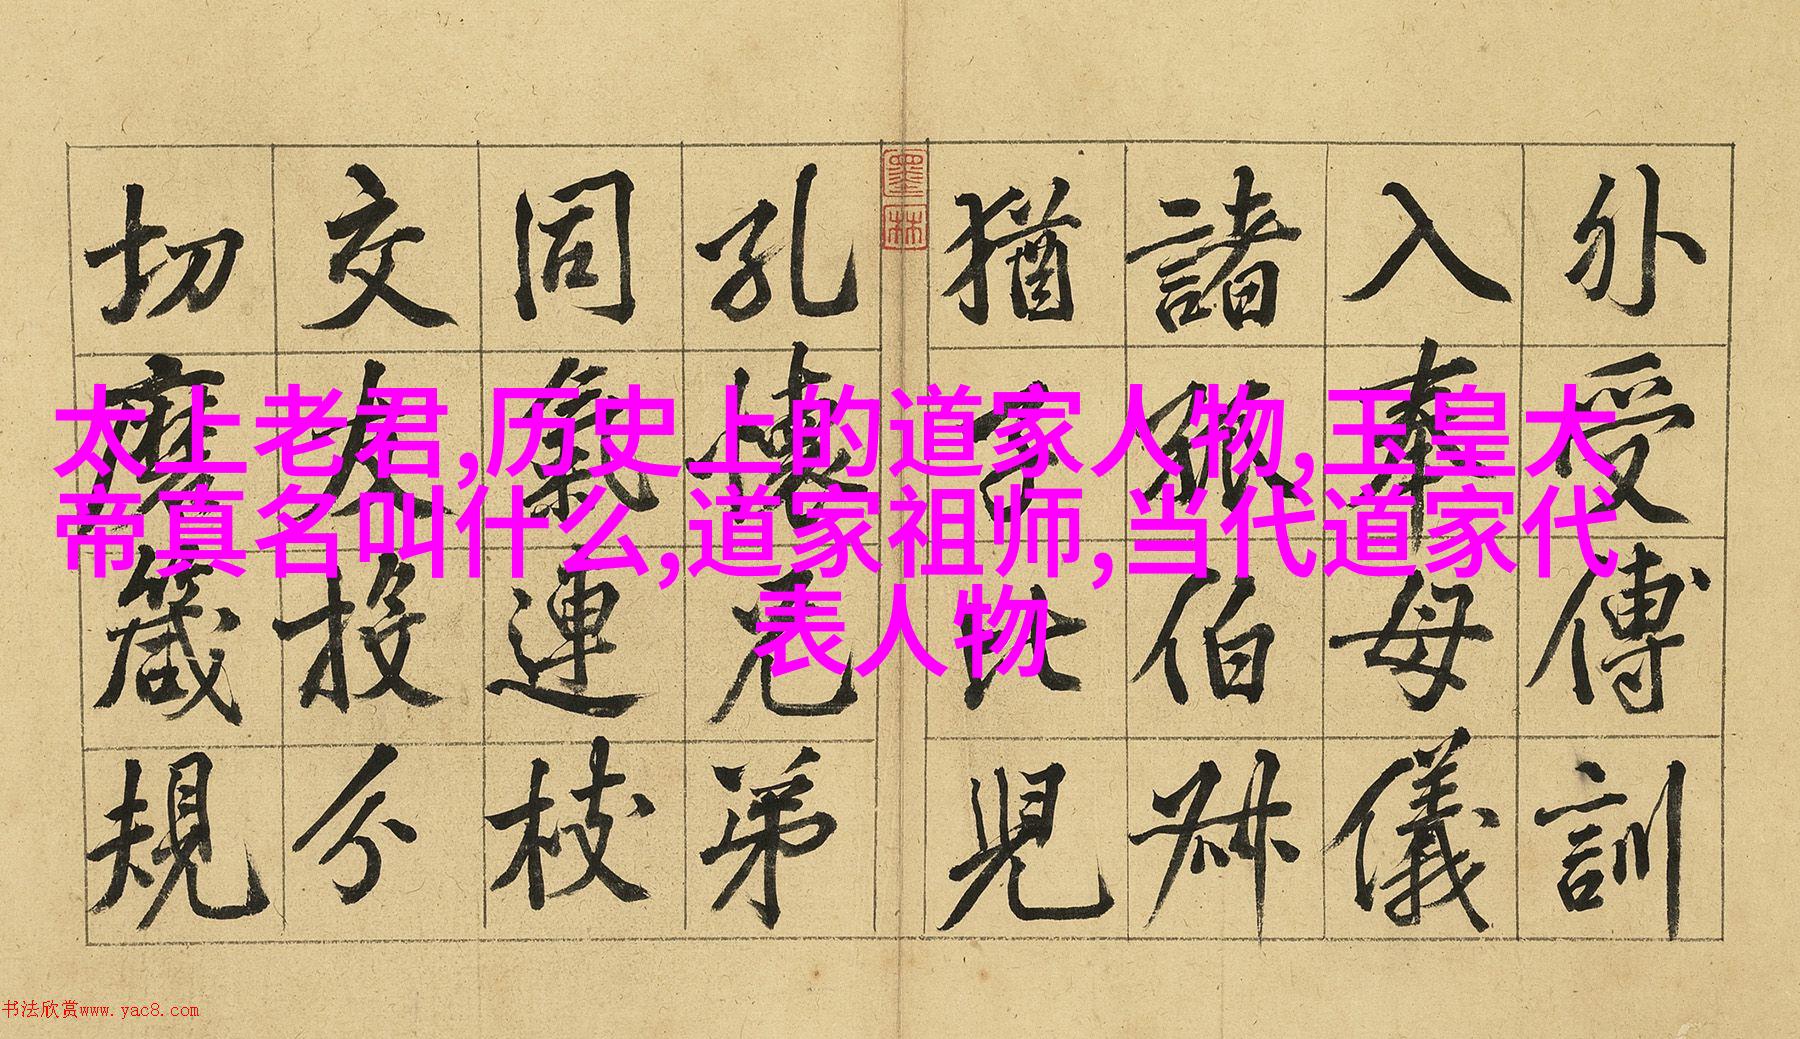 太上老君,历史上的道家人物,玉皇大
帝真名叫什么,道家祖师,当代道家代
表人物
外受傅訓
入奉母儀
諸姑伯叔
猶子比兒
孔懷兄弟
同氣連枝
交友投分
切磨箴規
墨林
书法欣赏www.yac8.com